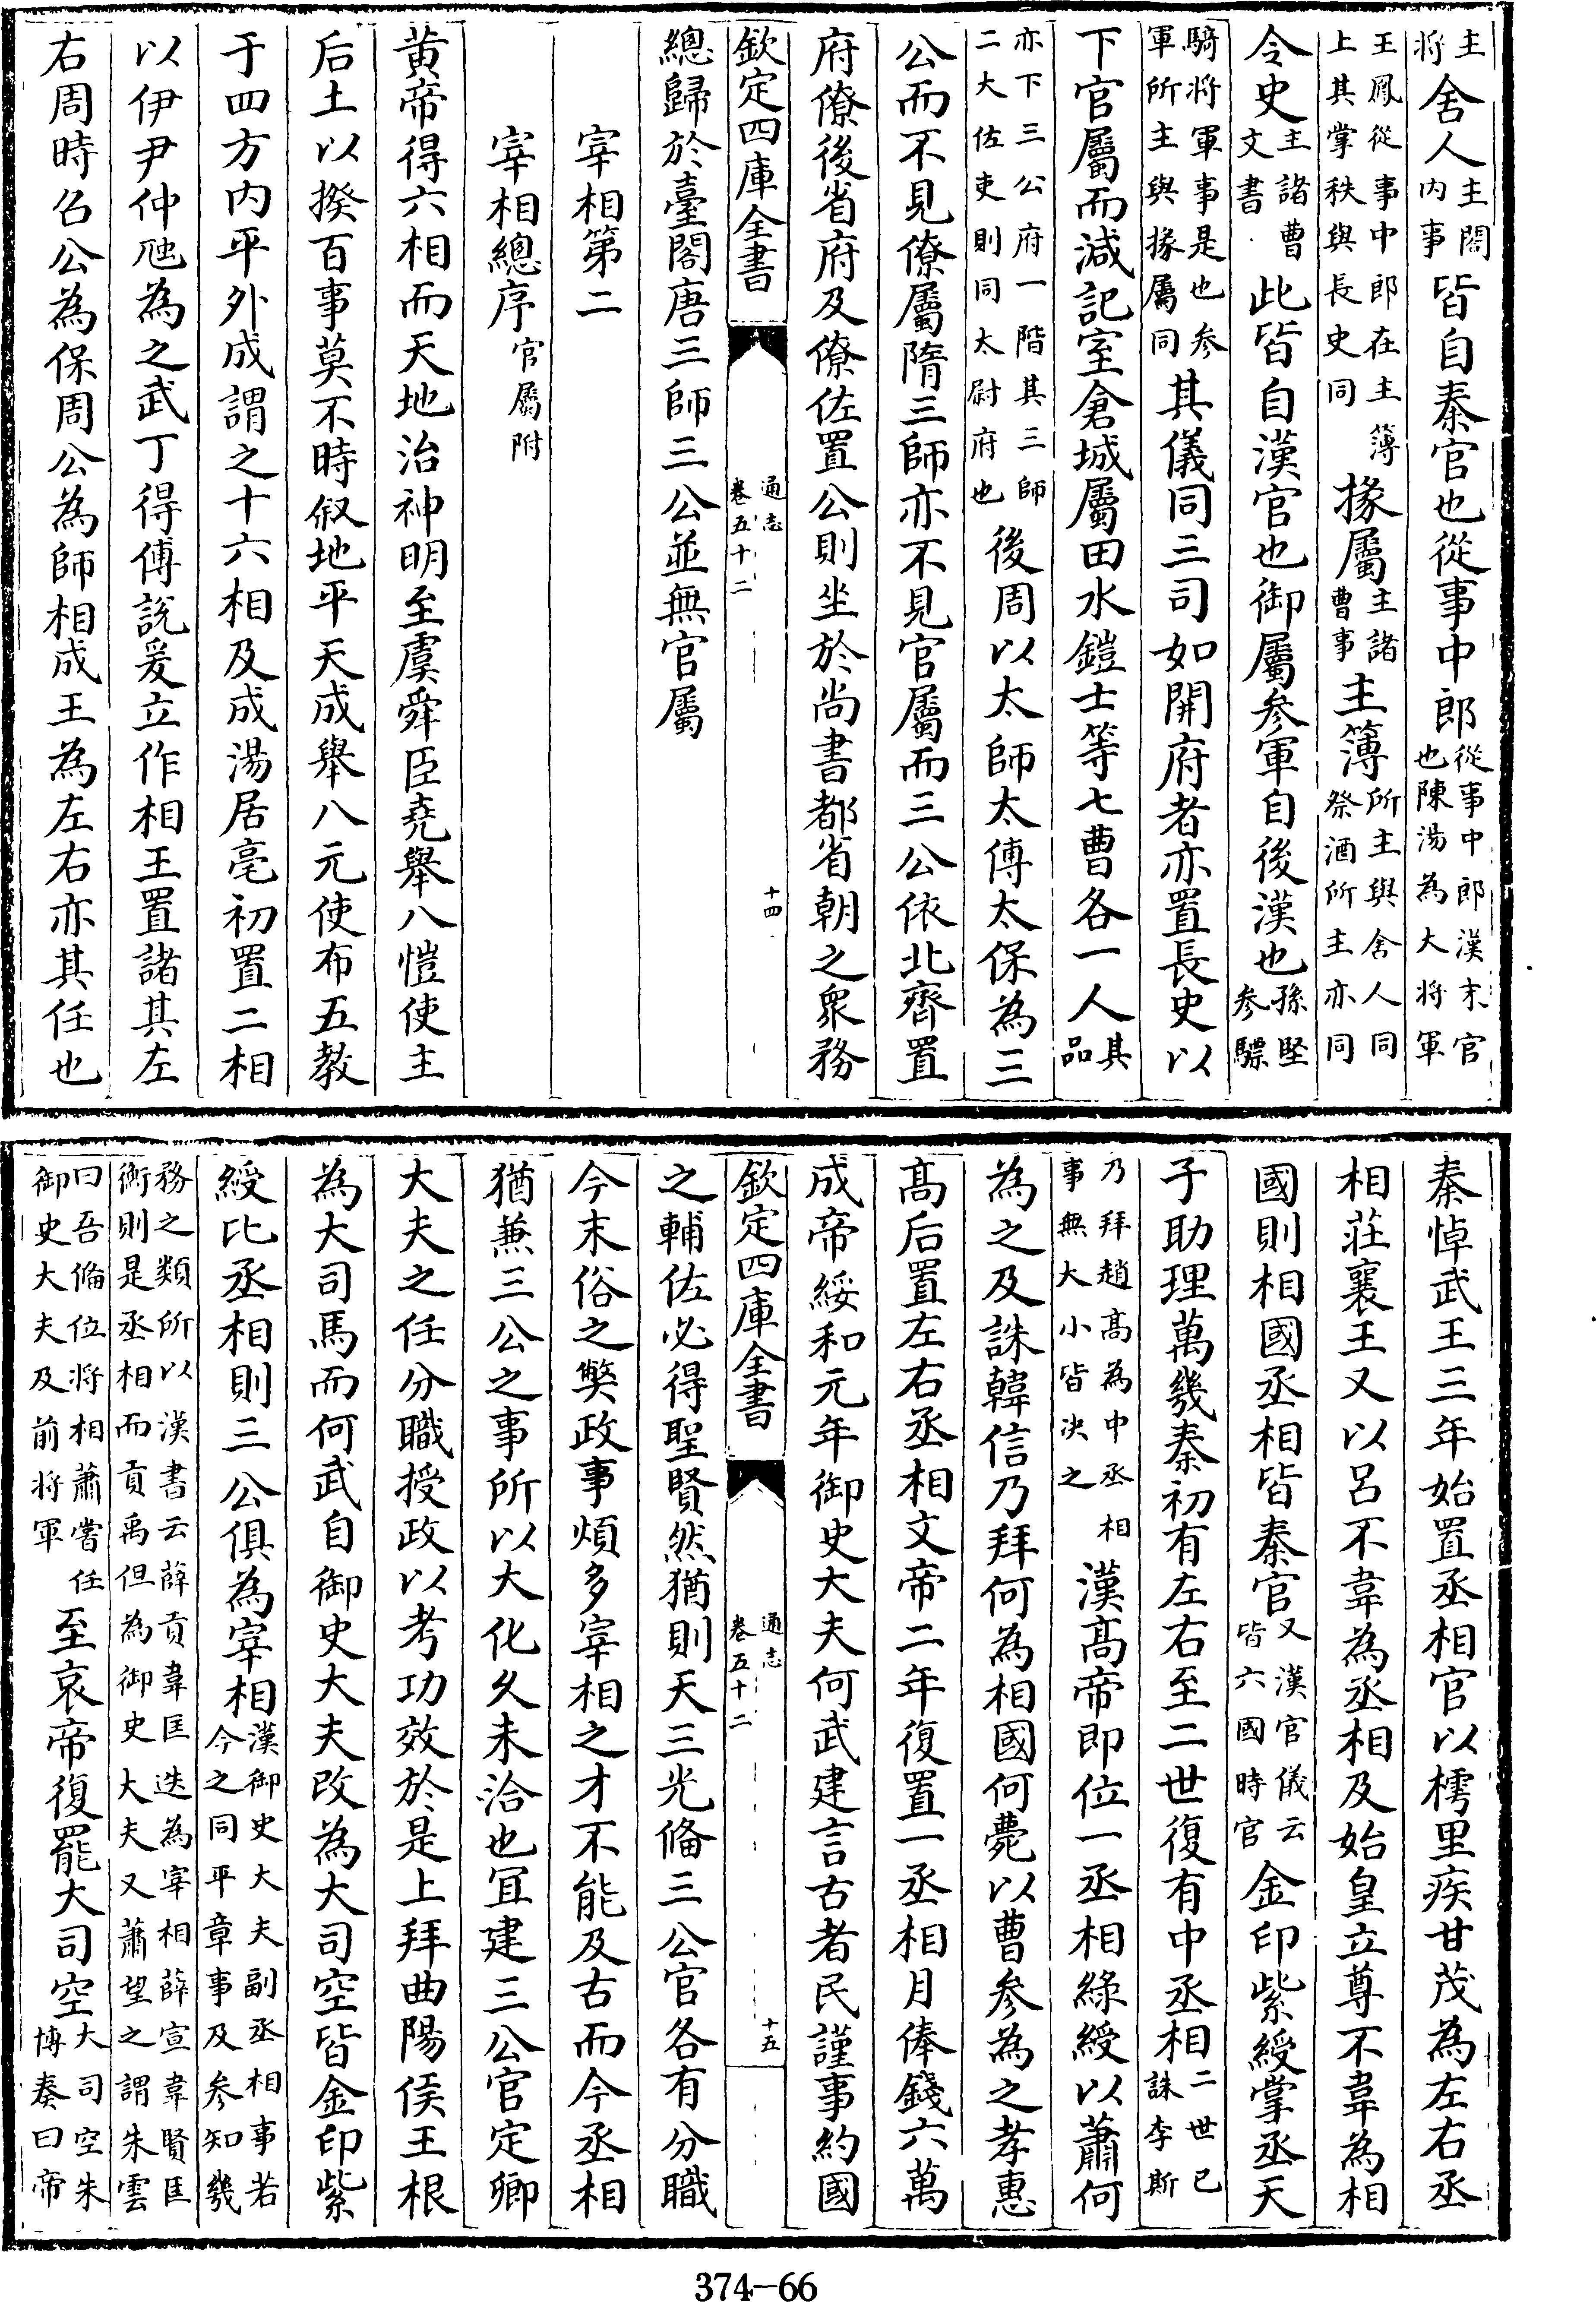 主將舍人主閤內事皆自秦官也從事中郎從事中郎漢末官也陳湯為大將軍
王鳳從事中郎在主簿上其掌秩與長史同掾屬主諸曹事主簿所主與舍人同祭酒所主亦同
令史主諸曹文書此皆自漢官也御屬參軍自後漢也孫堅參驃
騎將軍事是也參軍所主與掾屬同其儀同三司如開府者亦置長史以
下官屬而減記室倉城屬田水鎧士等七曹各一人其品
亦下三公府一階其三師二大佐吏則同太尉府也後周以太師太傅太保為三
公而不見僚屬隋三師亦不見官屬而三公依北齊置
府僚後省府及僚佐置公則坐於尚書都省朝之衆務
欽定四庫全書 通志卷五十二 十四
總歸於臺閣唐三師三公並無官屬
宰相第二
宰相總序官屬附
黃帝得六相而天地治神明至虞舜臣堯舉八愷使主
后土以揆百事莫不時叙地平天成舉八元使布五教
于四方内平外成謂之十六相及成湯居亳初置二相
以伊尹仲虺為之武丁得傅說爰立作相王置諸其左
右周時召公為保周公為師相成王為左右亦其任也
秦悼武王三年始置丞相官以樗里疾甘茂為左右丞
相莊襄王又以呂不韋為丞相及始皇立尊不韋為相
國則相國丞相皆秦官又漢官儀云皆六國時官金印紫綬掌丞天
子助理萬幾秦初有左右至二世復有中丞相二世已誅李斯
乃拜趙髙為中丞相事無大小皆決之漢髙帝即位一丞相綠綬以蕭何
為之及誅韓信乃拜何為相國何薨以曹參為之孝惠
髙后置左右丞相文帝二年復置一丞相月俸錢六萬
成帝綏和元年御史大夫何武建言古者民謹事約國
欽定四庫全書 通志卷五十二 十五
之輔佐必得聖賢然猶則天三光備三公官各有分職
今末俗之獘政事煩多宰相之才不能及古而今丞相
猶兼三公之事所以大化久未洽也宜建三公官定卿
大夫之任分職授政以考功效於是上拜曲陽侯王根
為大司馬而何武自御史大夫改為大司空皆金印紫
綬比丞相則三公俱為宰相漢御史大夫副丞相事若今之同平章事及參知幾
務之類所以漢書云薛貢韋匡迭為宰相薛宣韋賢匡衡則是丞相而貢禹但為御史大夫又蕭望之謂朱雲
曰吾備位將相蕭嘗任御史大夫及前將軍至哀帝復罷大司空大司空朱博奏曰帝
374-66